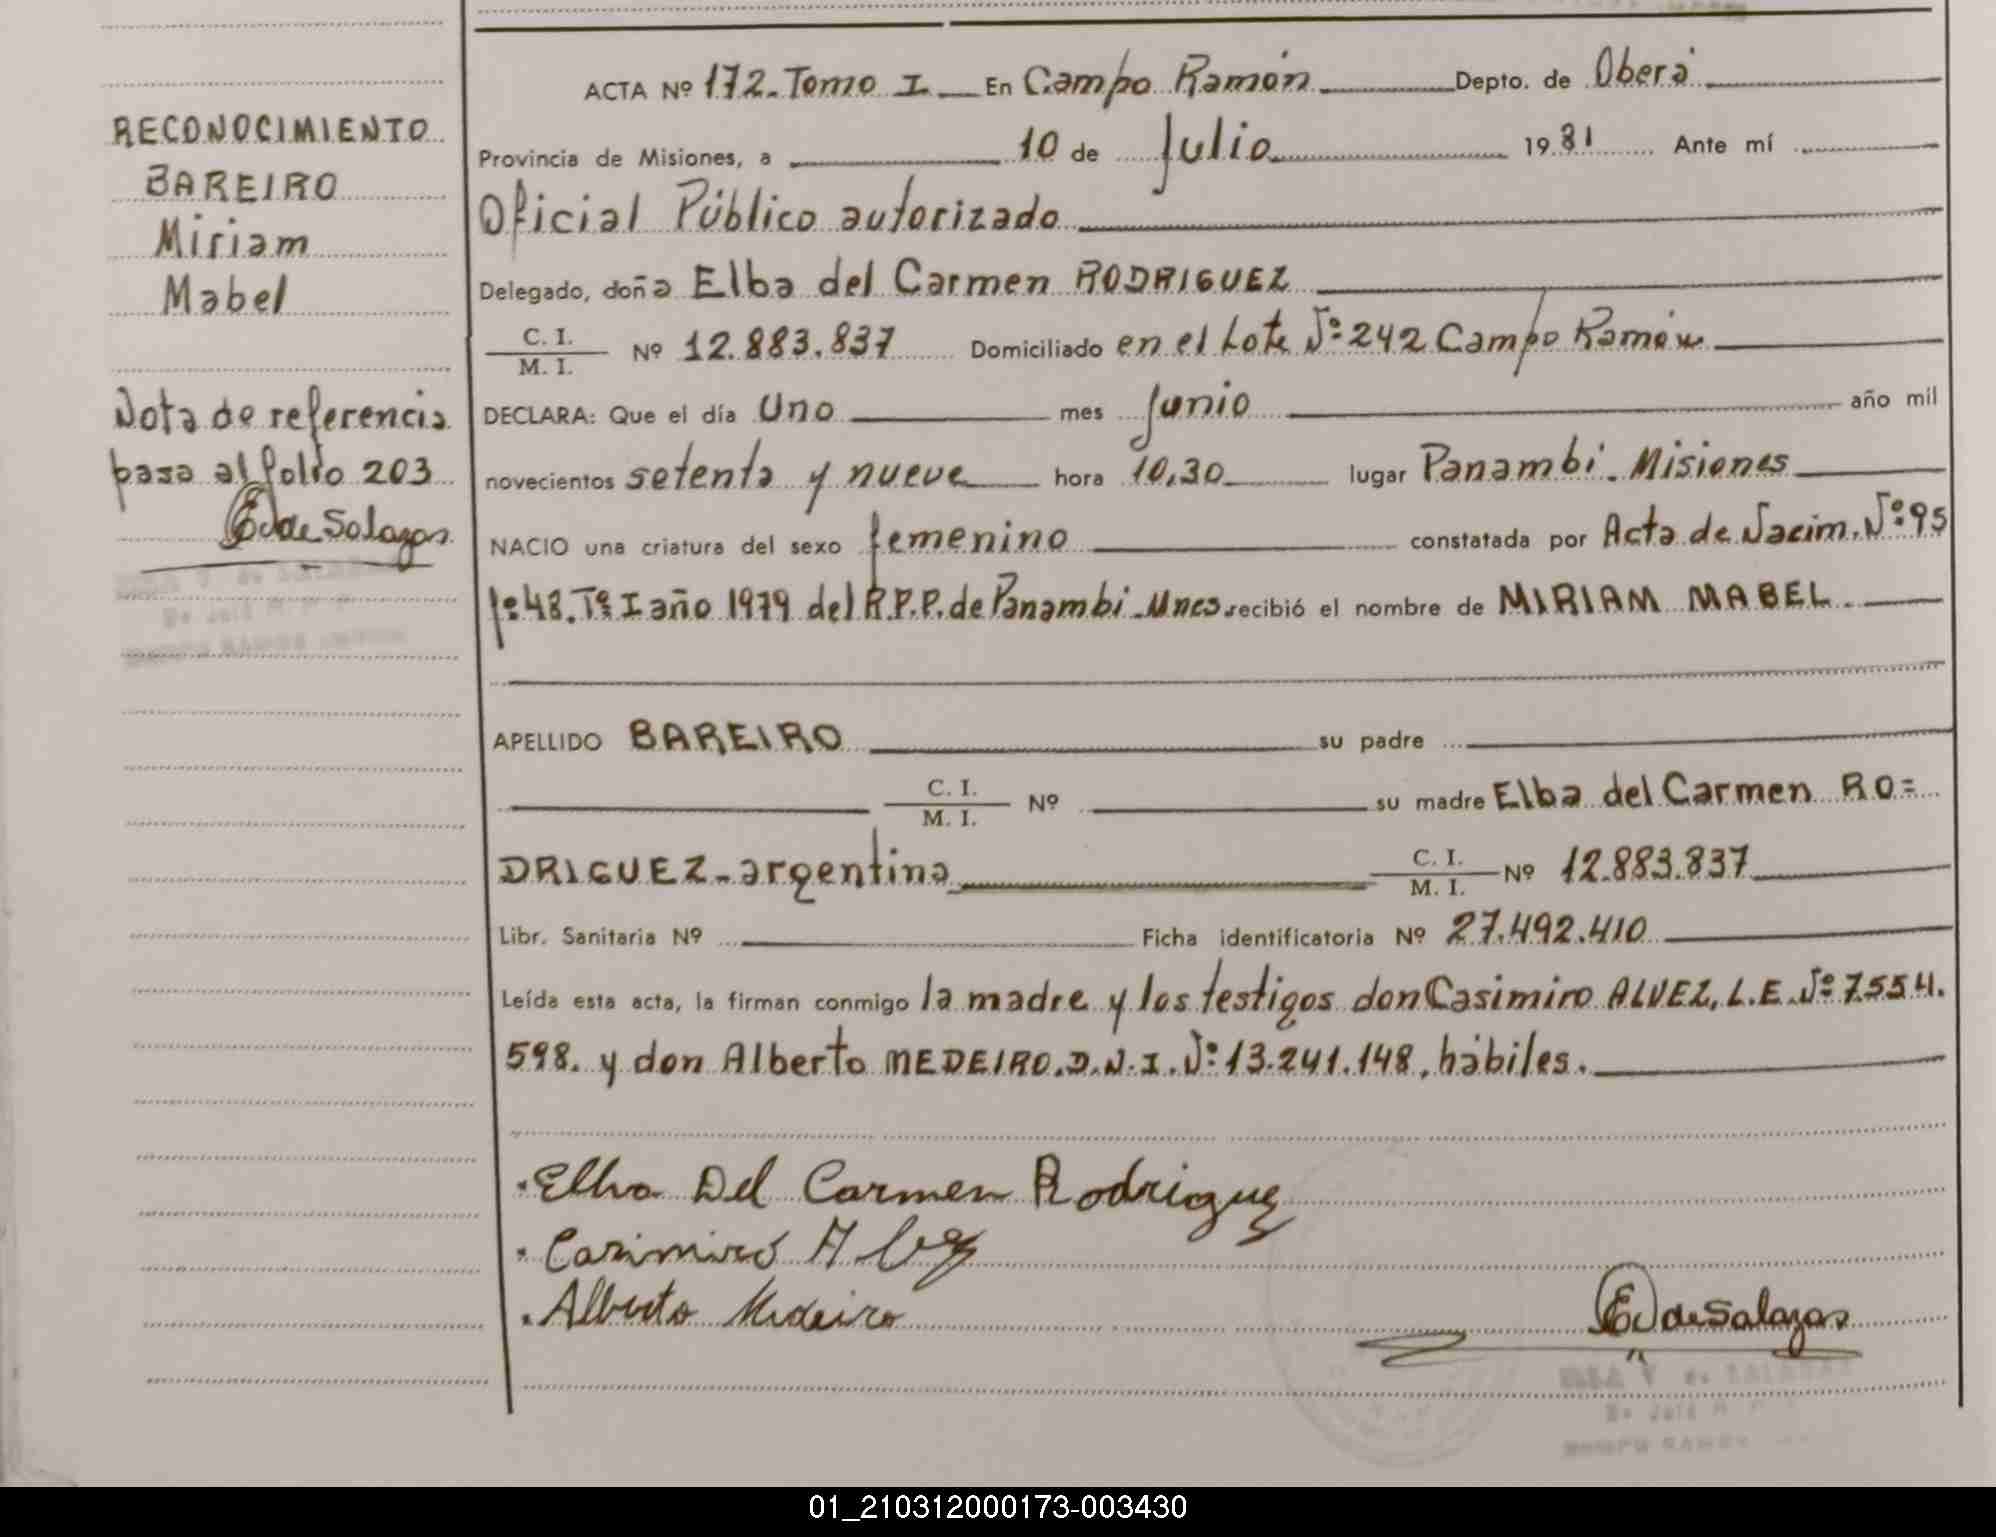 RECONOCIMIENTO
BAREIRO
Miriam
Mabel
Nota de referencia
pasa al folio 203
E V de Salazar
ACTA Nº 172. Tomo I En Campo Ramón Depto. de Oberá
Provincia de Misiones, a 10 de Julio 1981 Ante mí
Oficial Público autorizado
Delegado, doña Elba del Carmen RODRIGUEZ
C. I.
M. I. Nº 12.883.837 Domiciliado en el Lote Nº 242 Campo Ramón
DECLARA: Que el día Uno mes Junio año mil
novecientos setenta y nueve hora 10,30 lugar Panambi. Misiones
NACIO una criatura del sexo femenino constatada por Acta de Nacim. Nº 95
fº 48. Tº I año 1979 del R.P.P. de Panambi. Mnes. recibió el nombre de MIRIAM MABEL
APELLIDO BAREIRO su padre
C. I.
M. I. Nº su madre Elba del Carmen RO=
DRIGUEZ-argentina C. I.
M. I. Nº 12.883.837
Libr. Sanitaria Nº Ficha identificatoria Nº 27.492.410
Leída esta acta, la firman conmigo la madre y los testigos don Casimiro ALVEZ, L.E. Nº 7.554.
598. y don Alberto MEDEIRO. D.N.I. Nº 13.241.148, hábiles.
Elba Del Carmen Rodriguez
Casimiro Alvez
Alberto Medeiro
E V de Salazar
01_210312000173-003430